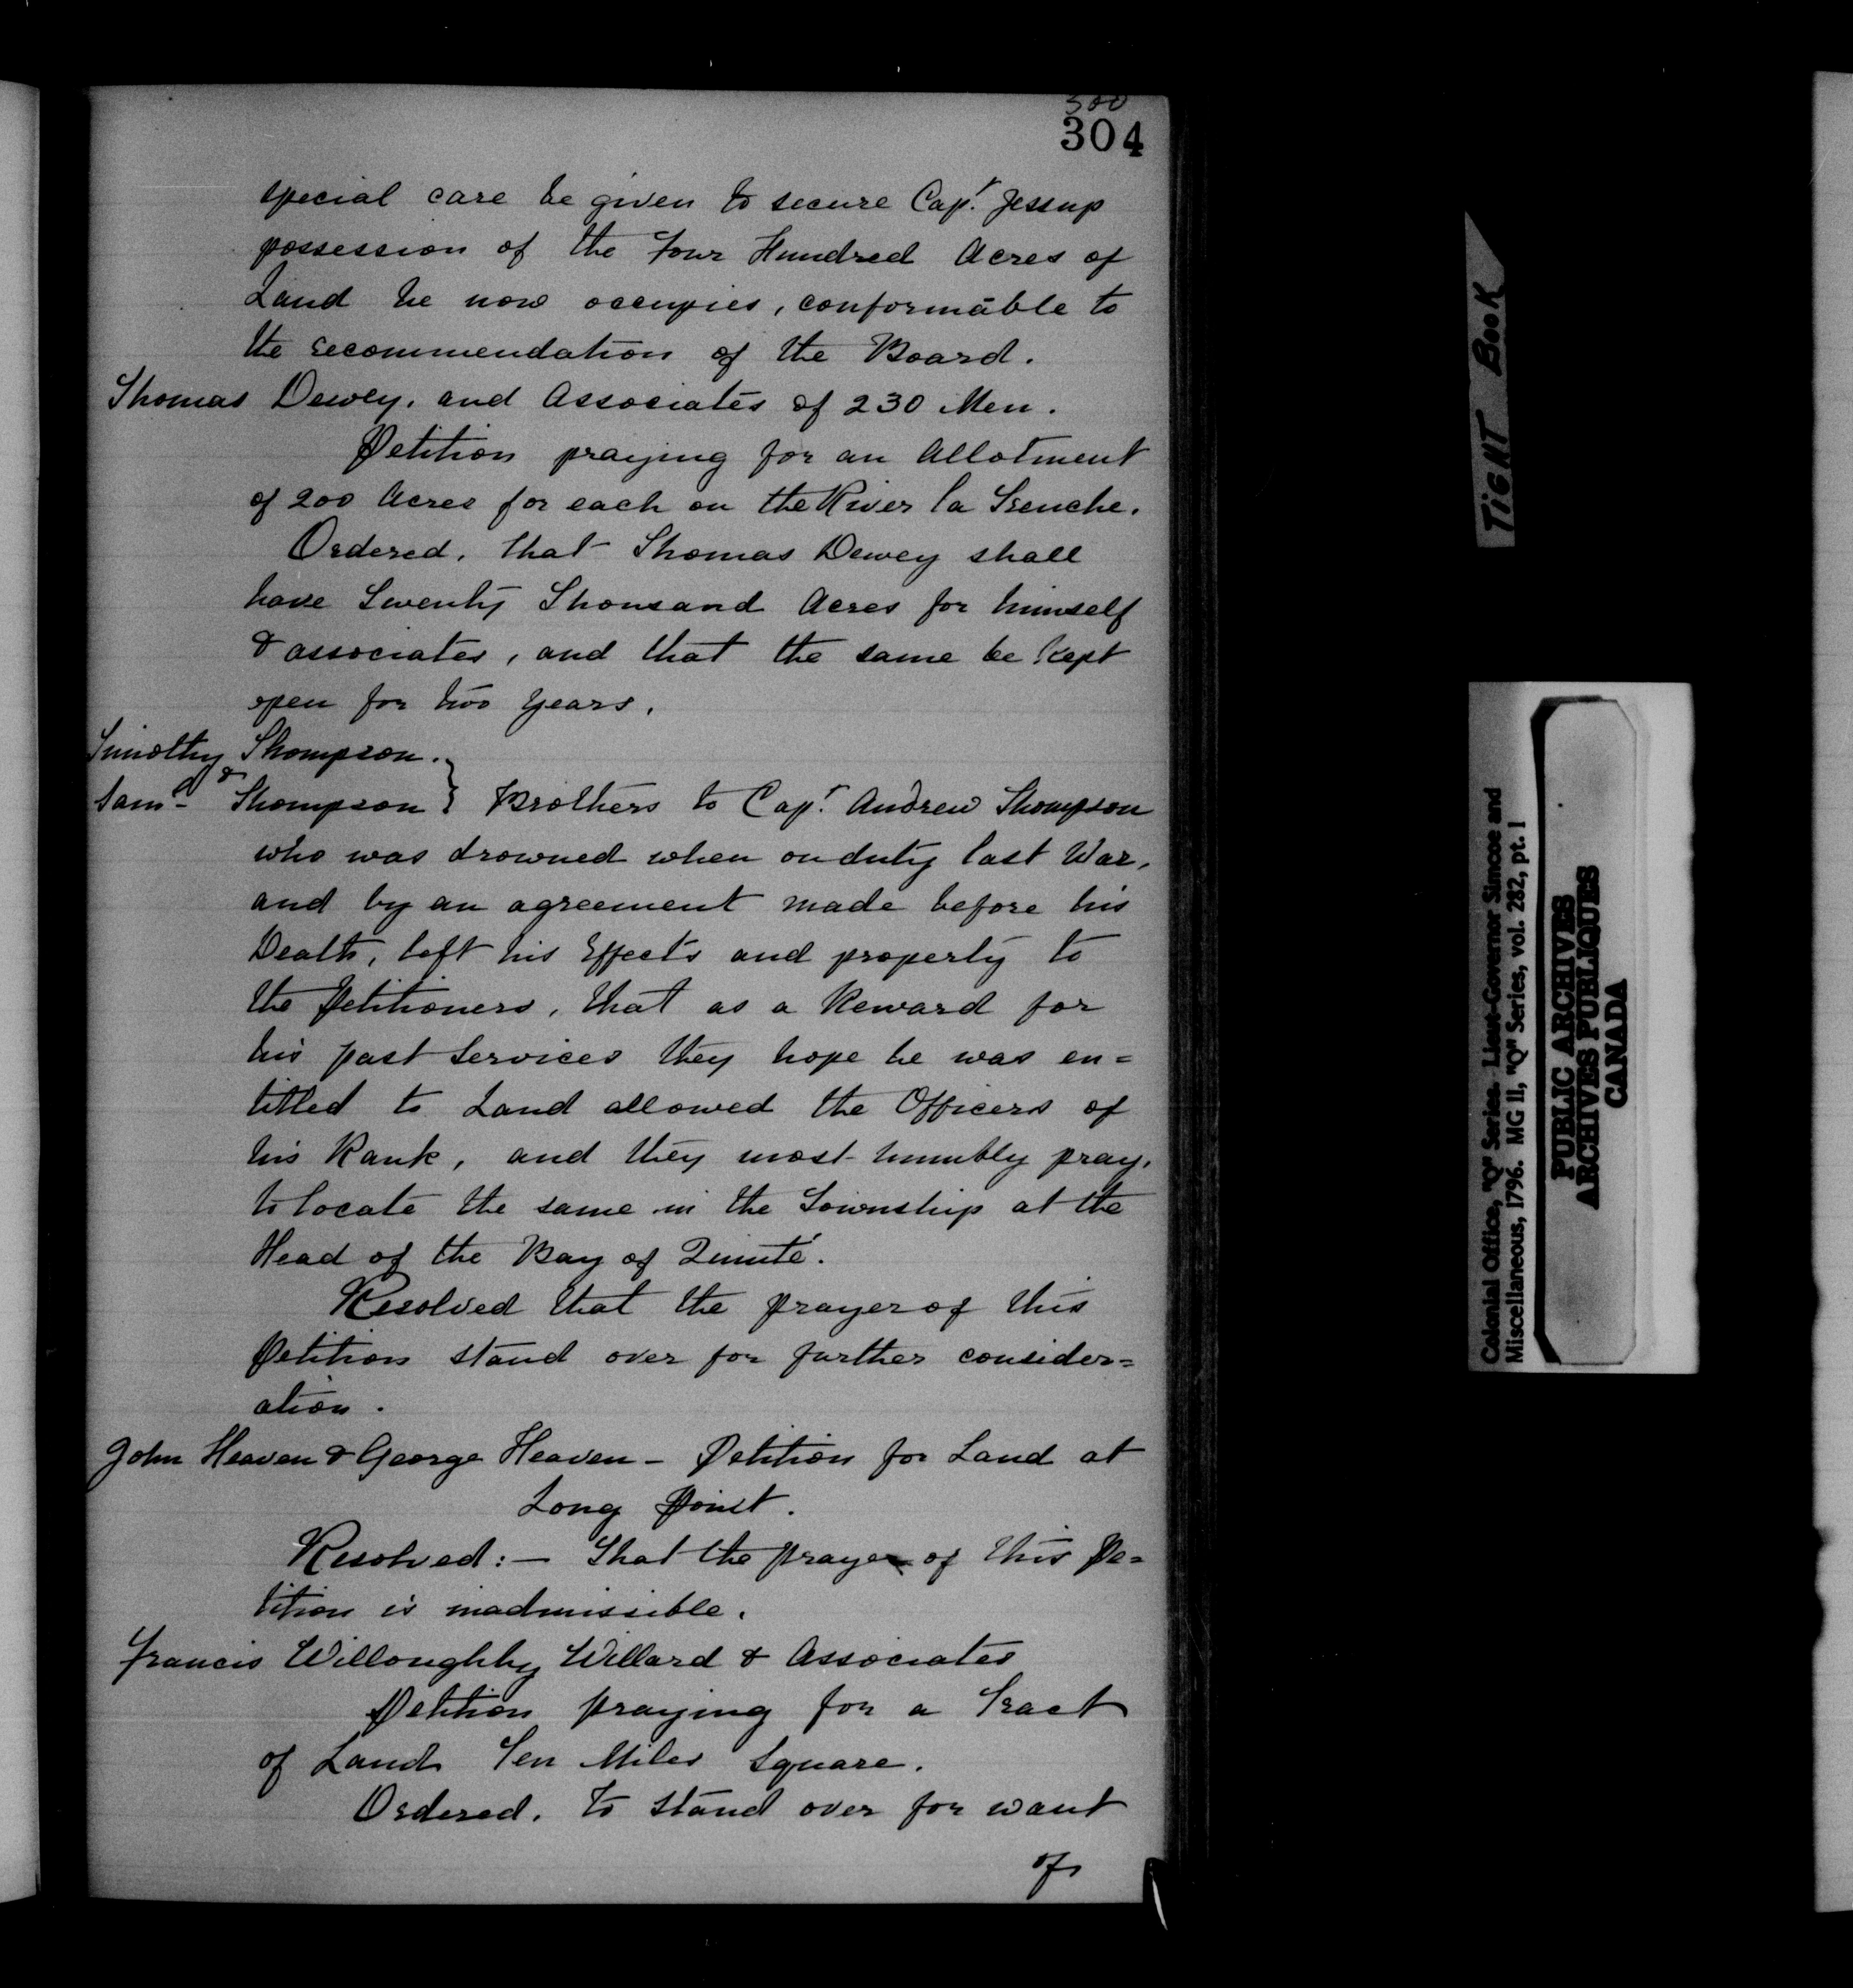 300
304
special care be given to secure Capt. Jessup
possession of the four Hundred Acres of
Land he now occupies, conformable to
the recommendation of the Board.
Thomas Dewey, and Associates of 230 Men.
Petition praying for an Allotment
of 200 Acres for each on the River la Trenche.
Ordered, that Thomas Dewey shall
have Twenty Thousand Acres for himself
& associates, and that the same be kept
open for two years.
Timothy Thompson.
&
Saml Thompson } Brothers to Capt. Andrew Thompson
who was drowned when on duty last War,
and by an agreement made before his
Death, left his Effects and property to
the Petitioners, that as a Reward for
his past Services they hope he was en=
titled to Land allowed the Officers of
his Rank, and they most humbly pray,
to locate the same in the Township at the
Head of the Bay of Quinté.
Resolved that the prayer of this
Petition stand over for further consider=
ation.
John Heaven & George Heaven - Petition for Land at
Long Point.
Resolved: - That the prayer of this Pe=
tition is inadmissible.
Francis Willoughby Willard & Associates
Petition praying for a Tract
of Land Ten Miles Square.
Ordered, to stand over for want
of
TIGHT BOOK
Colonial Office, "Q" Series. Lieut-Governor Simcoe and
Miscellaneous, 1796. MG 11, "Q" Series, vol. 282, pt. 1
PUBLIC ARCHIVES
ARCHIVES PUBLIQUES
CANADA